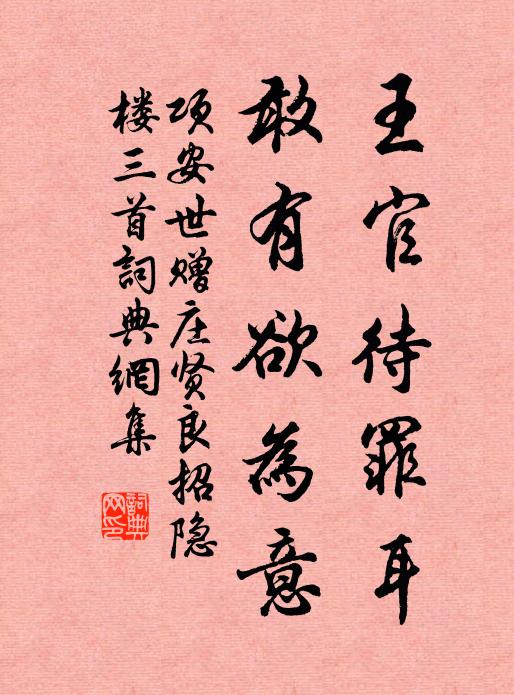 王官待罪耳
敢有欲為意
项安世赠庄贤良招隐
楼三首詞典網集
詞典网印